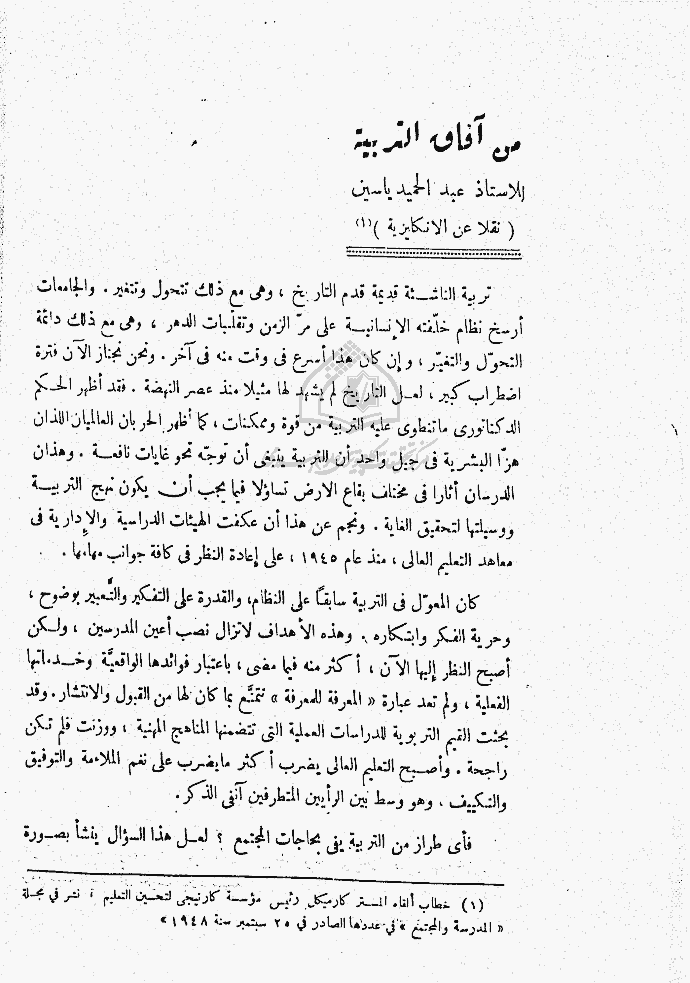 من آفاق التربية
للاستاذ عبد الحميد ياسين
( نقلا عن الانكليزية )(١)
تربية الناشئة قديمة قدم التاريخ ، وهى مع ذلك تتحول وتتغير . والجامعات
أرسخ نظام خلّفته الإنسانية على مرّ الزمن وتقلّبات الدهر ، وهى مع ذلك دائمة
التحوّل والتغيّر ، وإن كان هذا أسرع فى وقت منه فى آخر . ونحن نجتاز الآن فترة
اضطراب كبير ، لعل التاريخ لم يشهد لها مثيلا منذ عصر النهضة . فقد أظهر الحكم
الدكتاتورى ماتنطوى عليه التربية من قوة وممكنات ، كما أظهر الحربان العالميان اللذان
هزّا البشرية فى جيل واحد أن للتربية ينبغى أن توجّه نحو غايات نافعة . وهذان
الدرسان أثارا فى مختلف بقاع الارض تساؤلا فيما يجب أن يكون نهج التربية
ووسيلتها لتحقيق الغاية . ونجم عن هذا أن عكفت الهيئات الدراسية والإدارية فى
معاهد التعليم العالى ، منذ عام ١٩٤٥ ، على إعادة النظر فى كافة جوانب مهامها .
كان المعوّل فى التربية سابقًا على النظام، والقدرة على التفكير والتَّعبير بوضوح ،
وحرية الفكر وابتكاره . وهذه الأهداف لاتزال نصب أعين المدرسين ، ولكن
أصبح النظر إليها الآن ، أكثر منه فيما مضى ، باعتبار فوائدها الواقعيَّة وخدماتها
الفعلية ، ولم تعد عبارة « المعرفة للمعرفة » تتمتَّع بما كان لها من القبول والانتشار . وقد
بحثت القيم التربوية للدراسات العملية التى تتضمنها المناهج المهنية ، ووزنت فلم تكن
راجحة . وأصبح التعليم العالى يضرب أكثر مايضرب على نغم الملاءمة والتوفيق
والتكييف ، وهو وسط بين الرأيين المتطرفين آنفى الذكر .
فأى طراز من التربية يفى بحاجات المجتمع ؟ لعل هذا السؤال ينشأ بصورة
(١) خطاب ألقاه المستر كارميكل رئيس مؤسسة كارنيجى لتحسين التعليم ، نشر فى مجلة
« المدرسة والمجتمع » فى عددها الصادر فى ٢٥ سبتمبر سنة ١٩٤٨ »